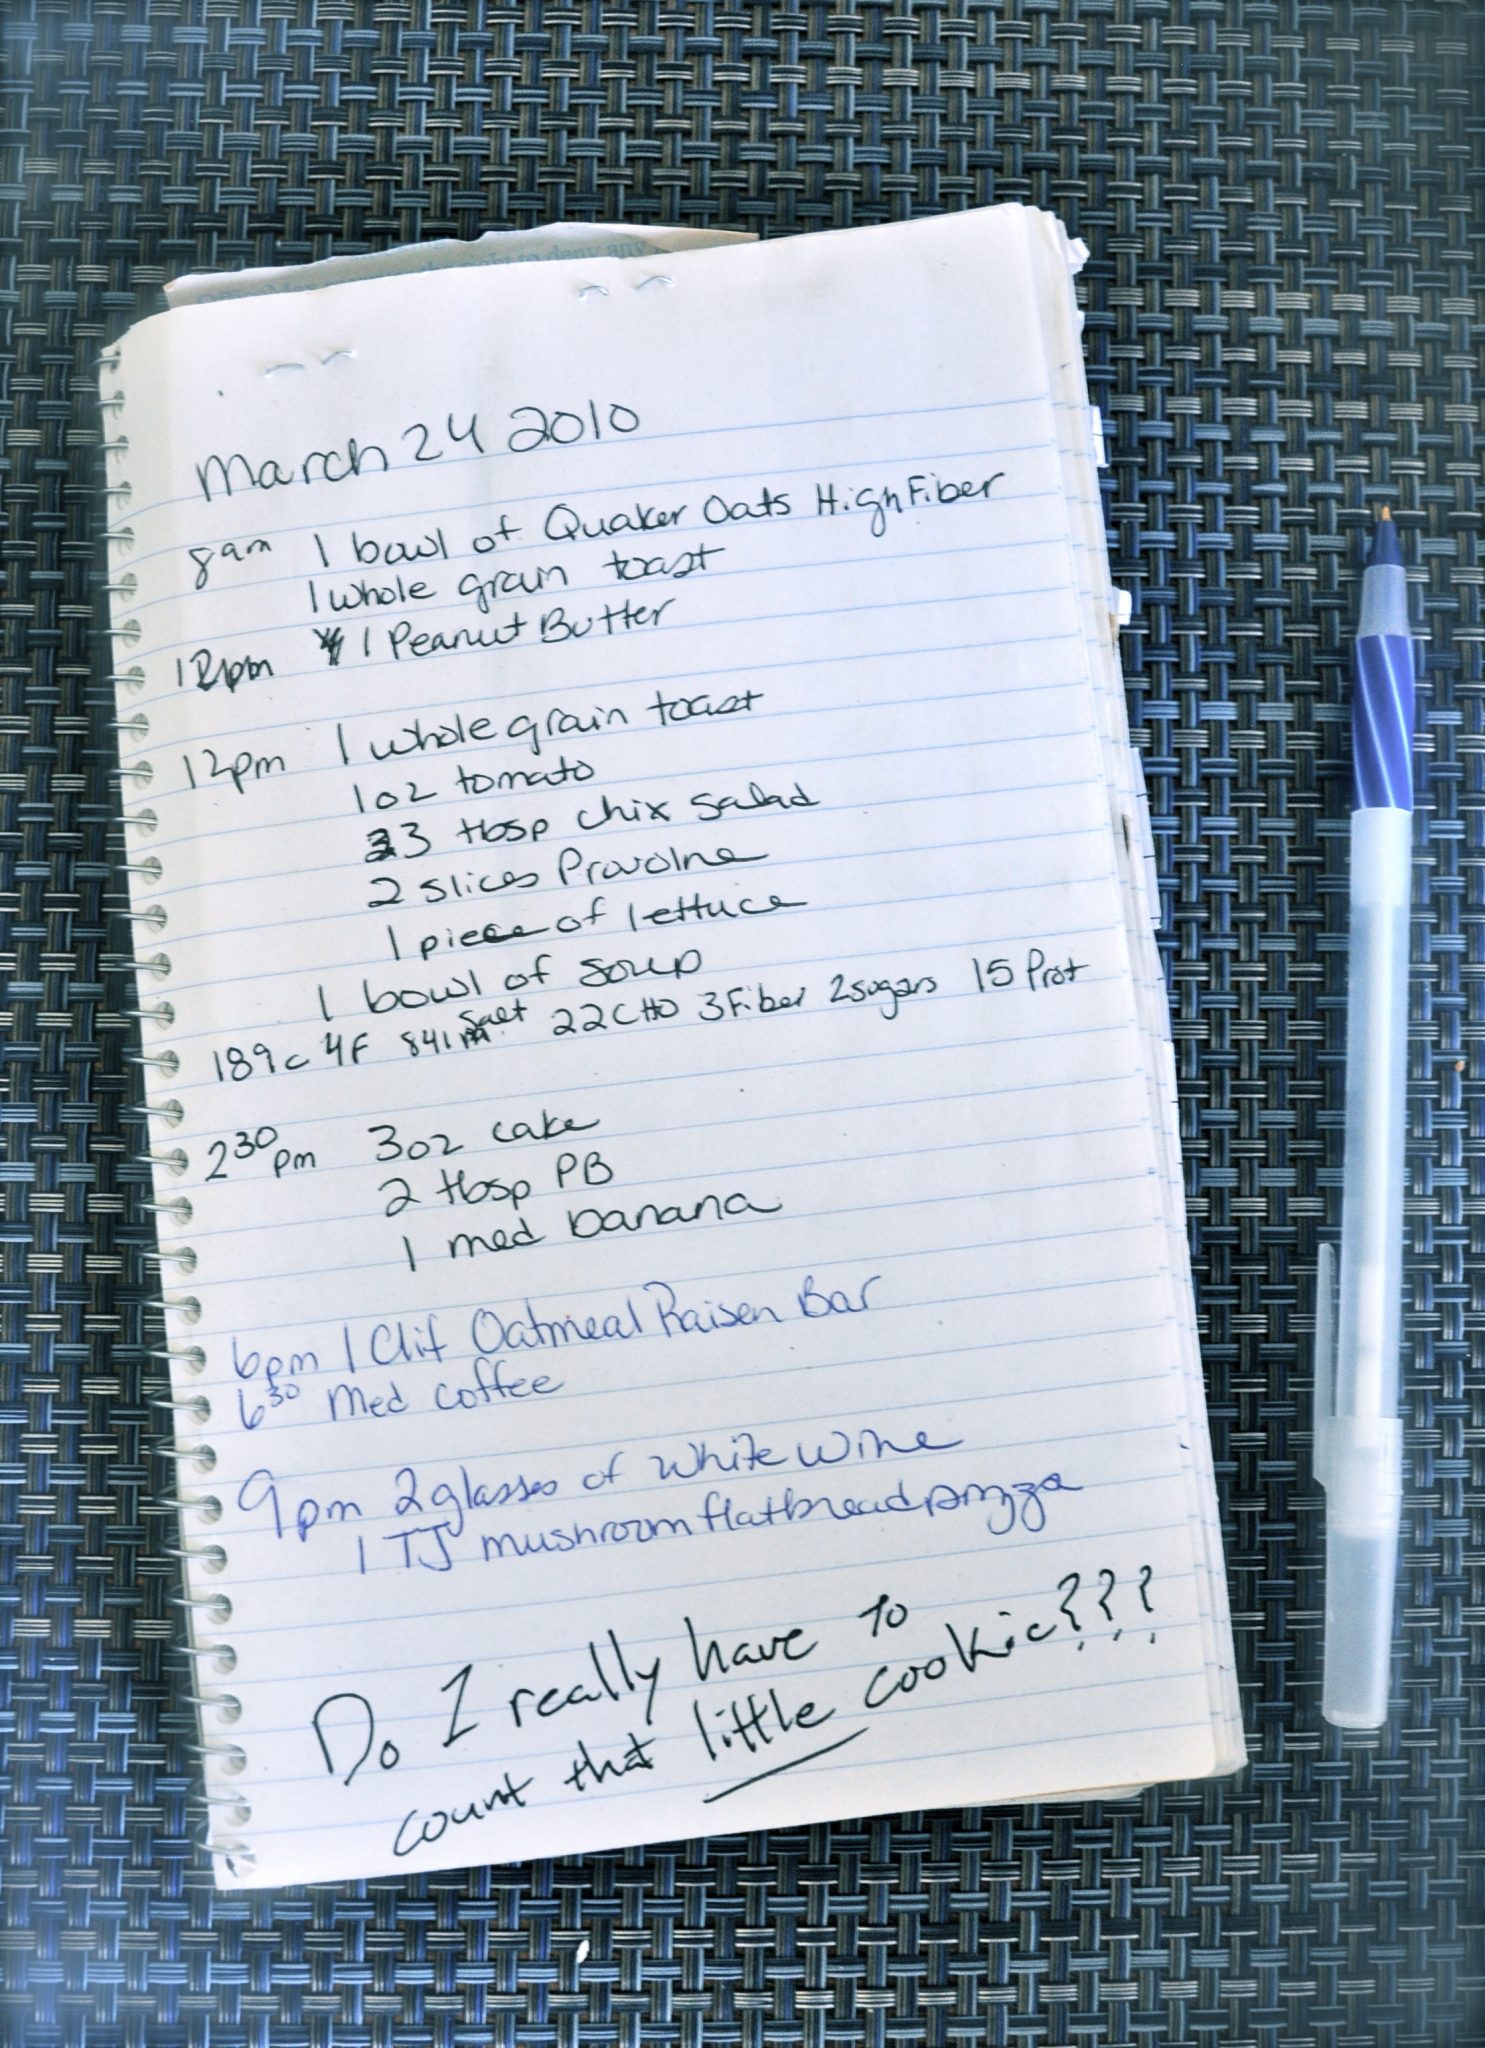 March 24 2010
8am 1 bowl of Quaker Oats High Fiber
1 whole grain toast
12pm 1 Peanut Butter
12pm 1 whole grain toast
1 oz tomato
3 tbsp chix salad
2 slices Provolne
1 piece of lettuce
1 bowl of soup
189c 4F 841m salt 22CHO 3Fiber 2sugars 15 Prot
2 30 pm 3oz cake
2 tbsp PB
1 med banana
6pm 1 Clif Oatmeal Raisen Bar
6 30 Med coffee
9pm 2 glasses of white wine
1 TJ mushroom flatbread pizza
Do I really have to
count that little cookie???